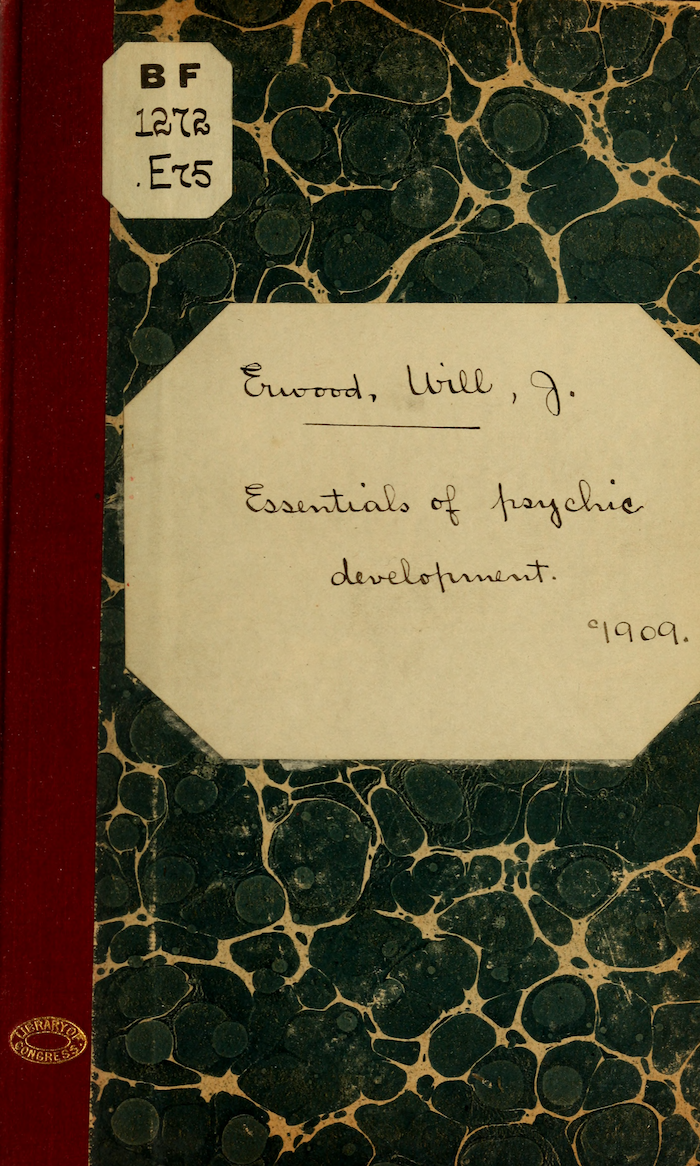 B F
1272
.E75
Erwood, Will, J.
Essentials of psychic
development.
c1909.
LIBRARY OF
CONGRESS.